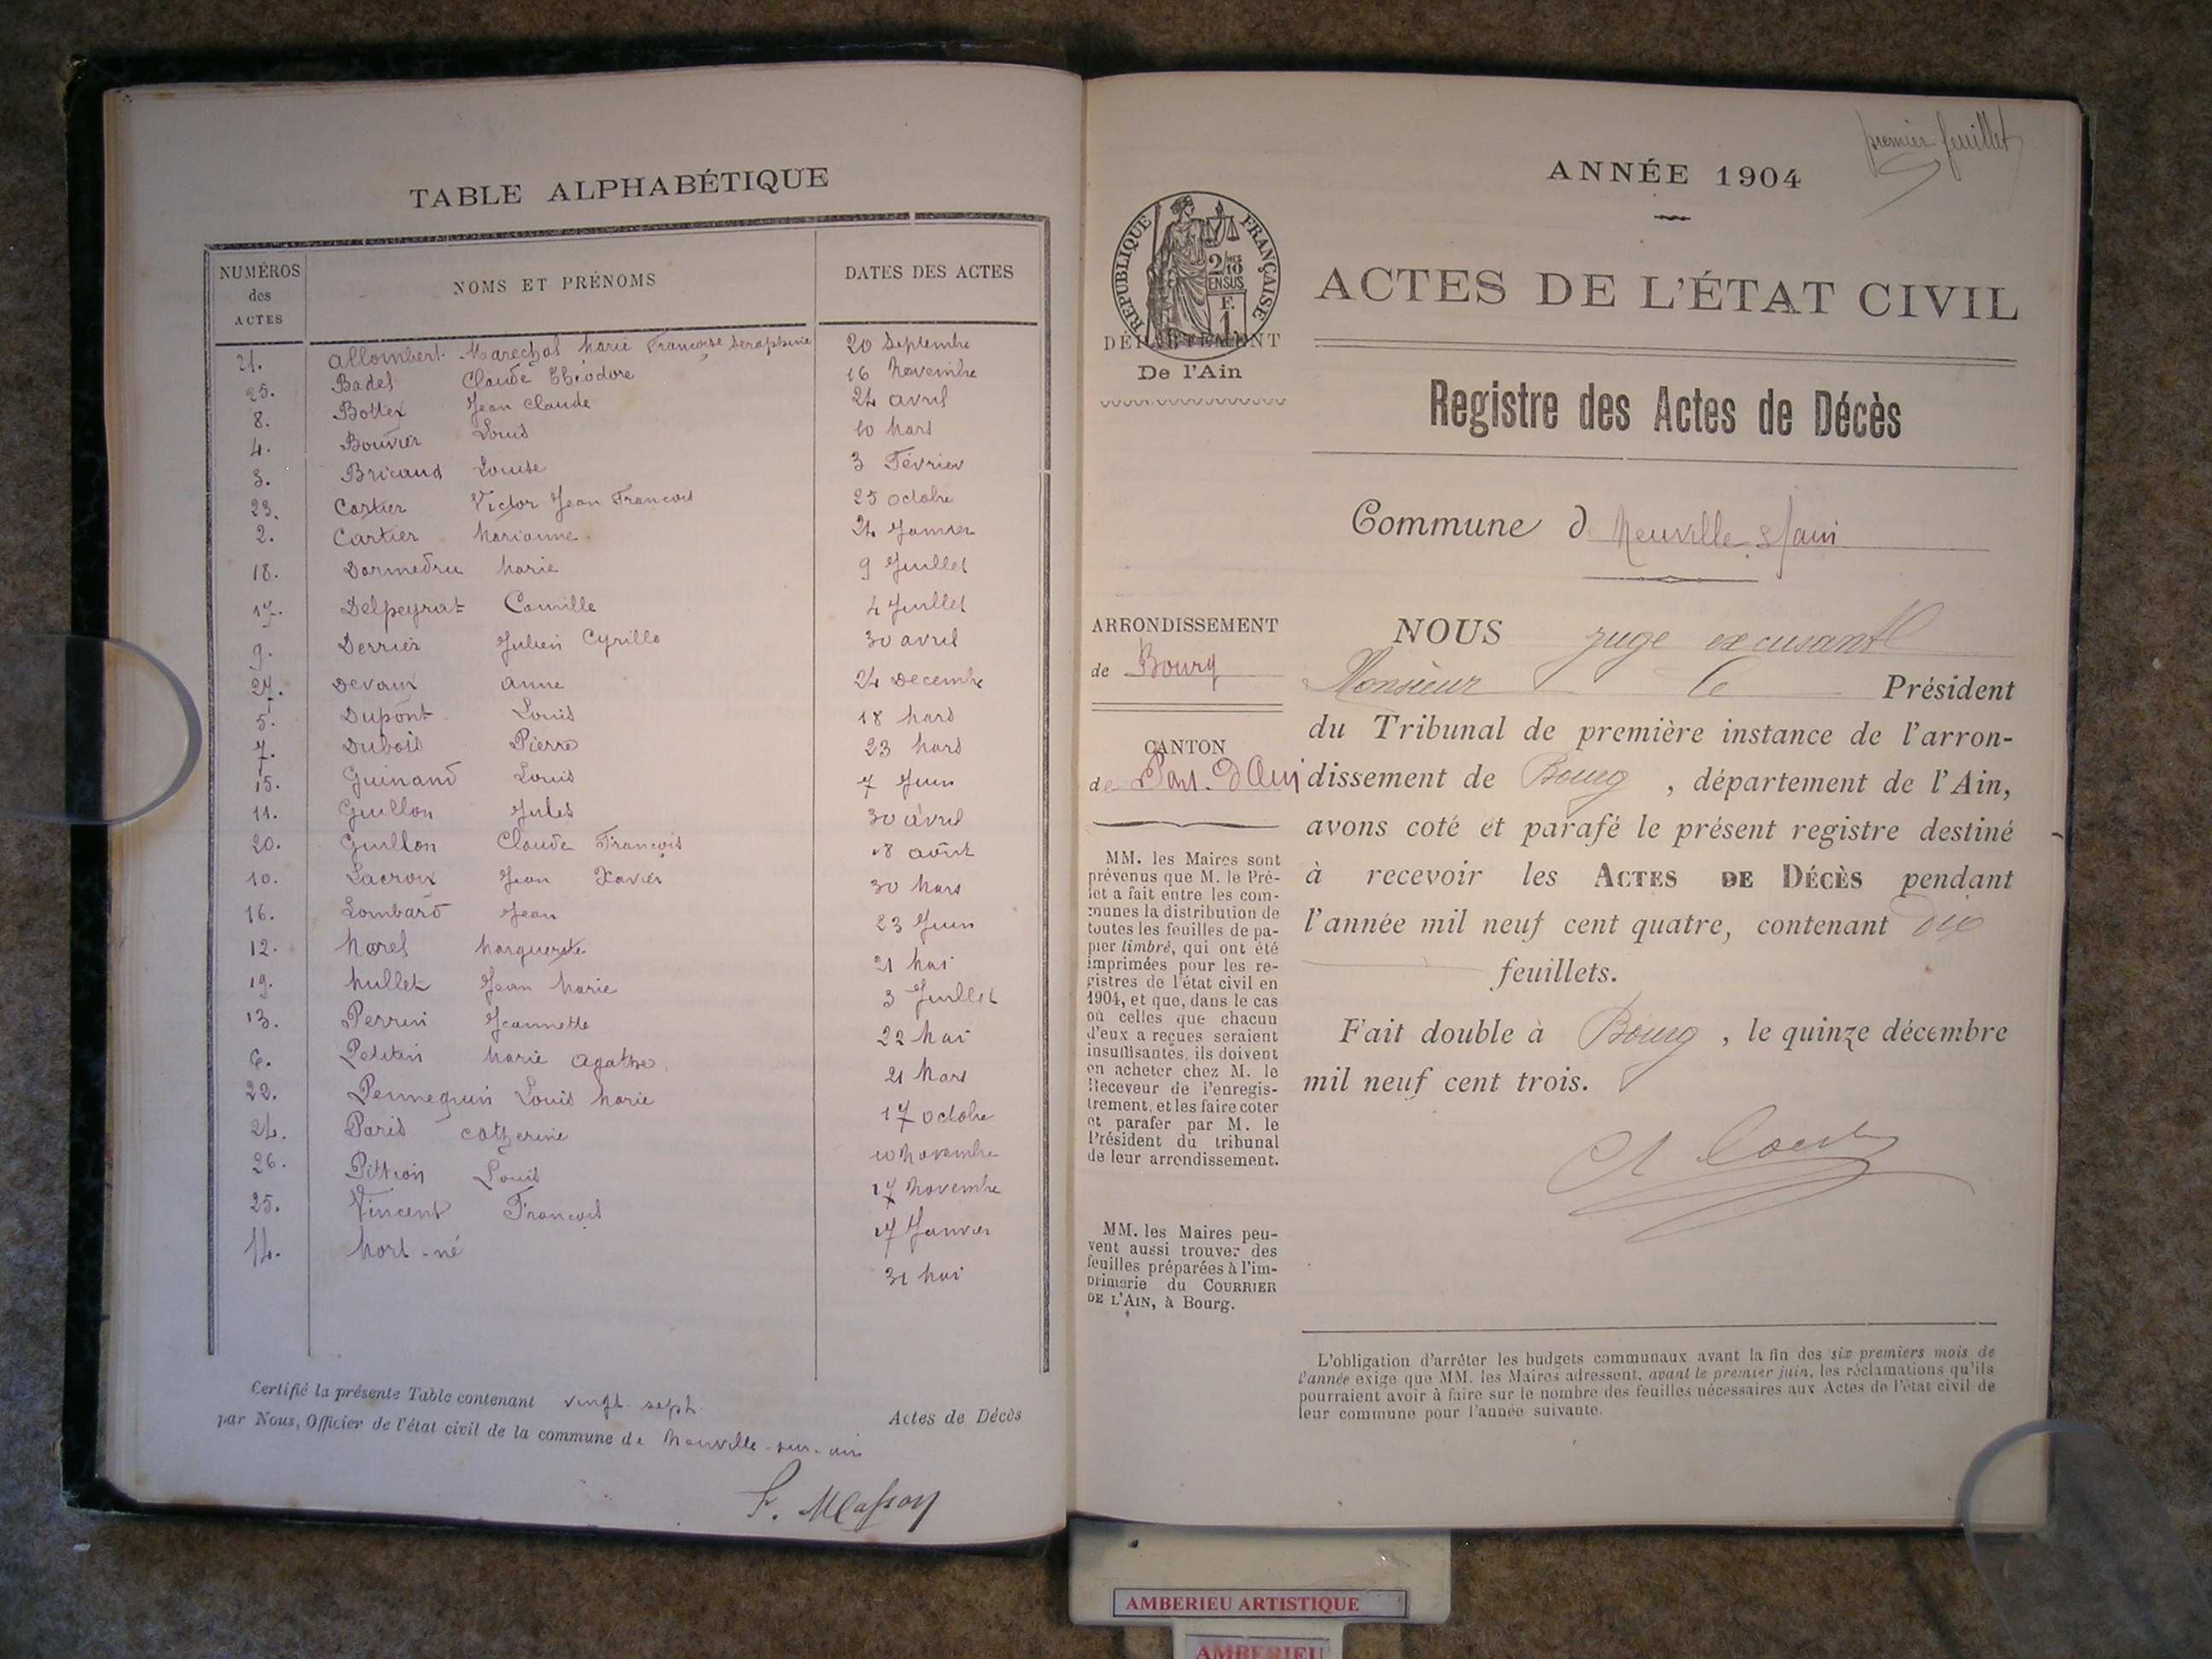 TABLE ALPHABÉTIQUE
NUMÉROS des ACTES NOMS ET PRÉNOMS DATES DES ACTES
21. Allombert Maréchal Marie Françoise Séraphine 20 Septembre
25. Badel Claude Théodore 16 Novembre
8. Bottex Jean Claude 24 avril
4. Bouvier Louis 10 Mars
3. Bricaud Louise 3 Février
23. Cartier Victor Jean François 25 octobre
2. Cartier Marianne 24 Janvier
18. Darmedru Marie 9 Juillet
17. Delpeyrat Camille 4 Juillet
9. Derrier Julien Cyrille 30 avril
27. Devaux Anne 24 Décembre
5. Dupont Louis 18 Mars
7. Dubois Pierre 23 Mars
15. Guinand Louis 7 Juin
11. Guillon Jules 30 avril
20. Guillon Claude François 18 août
10. Lacroix Jean Xavier 30 Mars
16. Lombard Jean 23 Juin
12. Morel Marguerite 21 Mai
19. Mullet Jean Marie 3 Juillet
13. Perrin Jeannette 22 Mai
6. Petitin Marie Agathe 21 Mars
22. Pennequin Louis Marie 17 octobre
24. Paris Catherine 10 Novembre
26. Pittion Louis 17 Novembre
25. Vincent François 17 Janvier
14. Mort-né 31 Mai
Certifié la présente Table contenant vingt-sept Actes de Décès
par Nous, Officier de l'état civil de la commune de Neuville-sur-ain
premier feuillet
ANNÉE 1904
RÉPUBLIQUE FRANÇAISE
2/10 EN SUS
F. 1
DÉPARTEMENT
De l'Ain
ACTES DE L'ÉTAT CIVIL
Registre des Actes de Décès
Commune d Neuville s/ain
ARRONDISSEMENT
de Bourg
CANTON
de Pont d'Ain
MM. les Maires sont
prévenus que M. le Pré-
fet a fait entre les com-
munes la distribution de
toutes les feuilles de pa-
pier timbré, qui ont été
imprimées pour les re-
gistres de l'état civil en
1904, et que, dans le cas
où celles que chacun
d'eux a reçues seraient
insuffisantes, ils doivent
en acheter chez M. le
Receveur de l'enregis-
trement, et les faire coter
et parafer par M. le
Président du tribunal
de leur arrondissement.
MM. les Maires peu-
vent aussi trouver des
feuilles préparées à l'im-
primerie du COURRIER
DE L'AIN, à Bourg.
NOUS juge excusant
Monsieur le Président
du Tribunal de première instance de l'arron-
dissement de Bourg, département de l'Ain,
avons coté et parafé le présent registre destiné
à recevoir les ACTES DE DÉCÈS pendant
l'année mil neuf cent quatre, contenant dix
feuillets.
Fait double à Bourg, le quinze décembre
mil neuf cent trois.
L'obligation d'arrêter les budgets communaux avant la fin des six premiers mois de
l'année exige que MM. les Maires adressent, avant le premier juin, les réclamations qu'ils
pourraient avoir à faire sur le nombre des feuilles nécessaires aux Actes de l'état civil de
leur commune pour l'année suivante.
AMBERIEU ARTISTIQUE
AMBERIEU